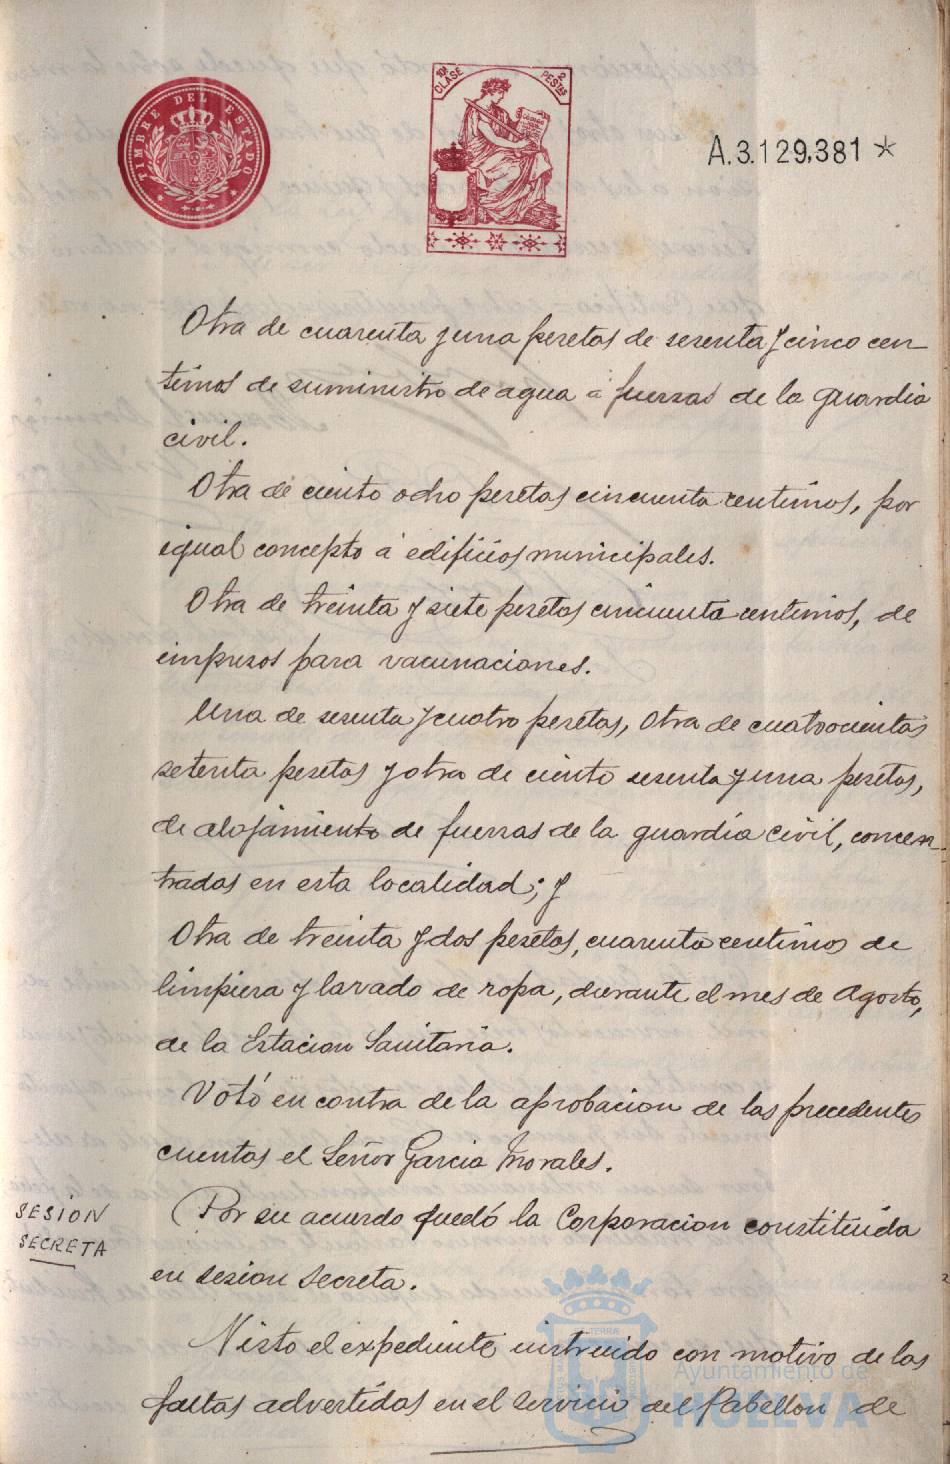 TIMBRE DEL ESTADO
10ª CLASE
2 PESTAS
A.3.129,381 *
Otra de cuarenta y una pesetas de sesenta y cinco cen-
timos de suministro de agua á fuerzas de la guardia
civil.
Otra de ciento ocho pesetas cincuenta centimos, por
igual concepto á edificios municipales.
Otra de treinta y siete pesetas cincuenta centimos, de
impresos para vacunaciones.
Una de sesenta y cuatro pesetas, otra de cuatrocientas
setenta pesetas y otra de ciento sesenta y una pesetas,
de alojamiento de fuerzas de la guardia civil, concen-
tradas en esta localidad; y
Otra de treinta y dos pesetas, cuarenta centimos de
limpieza y lavado de ropa, durante el mes de Agosto,
de la Estacion Sanitaria.
Votó en contra de la aprobacion de las precedentes
cuentas el Señor Garcia Morales.
SESION
SECRETA
Por su acuerdo quedó la Corporacion constituida
en sesion secreta.
Visto el expediente instruido con motivo de las
faltas advertidas en el servicio del Pabellon de
Ayuntamiento de
HUELVA